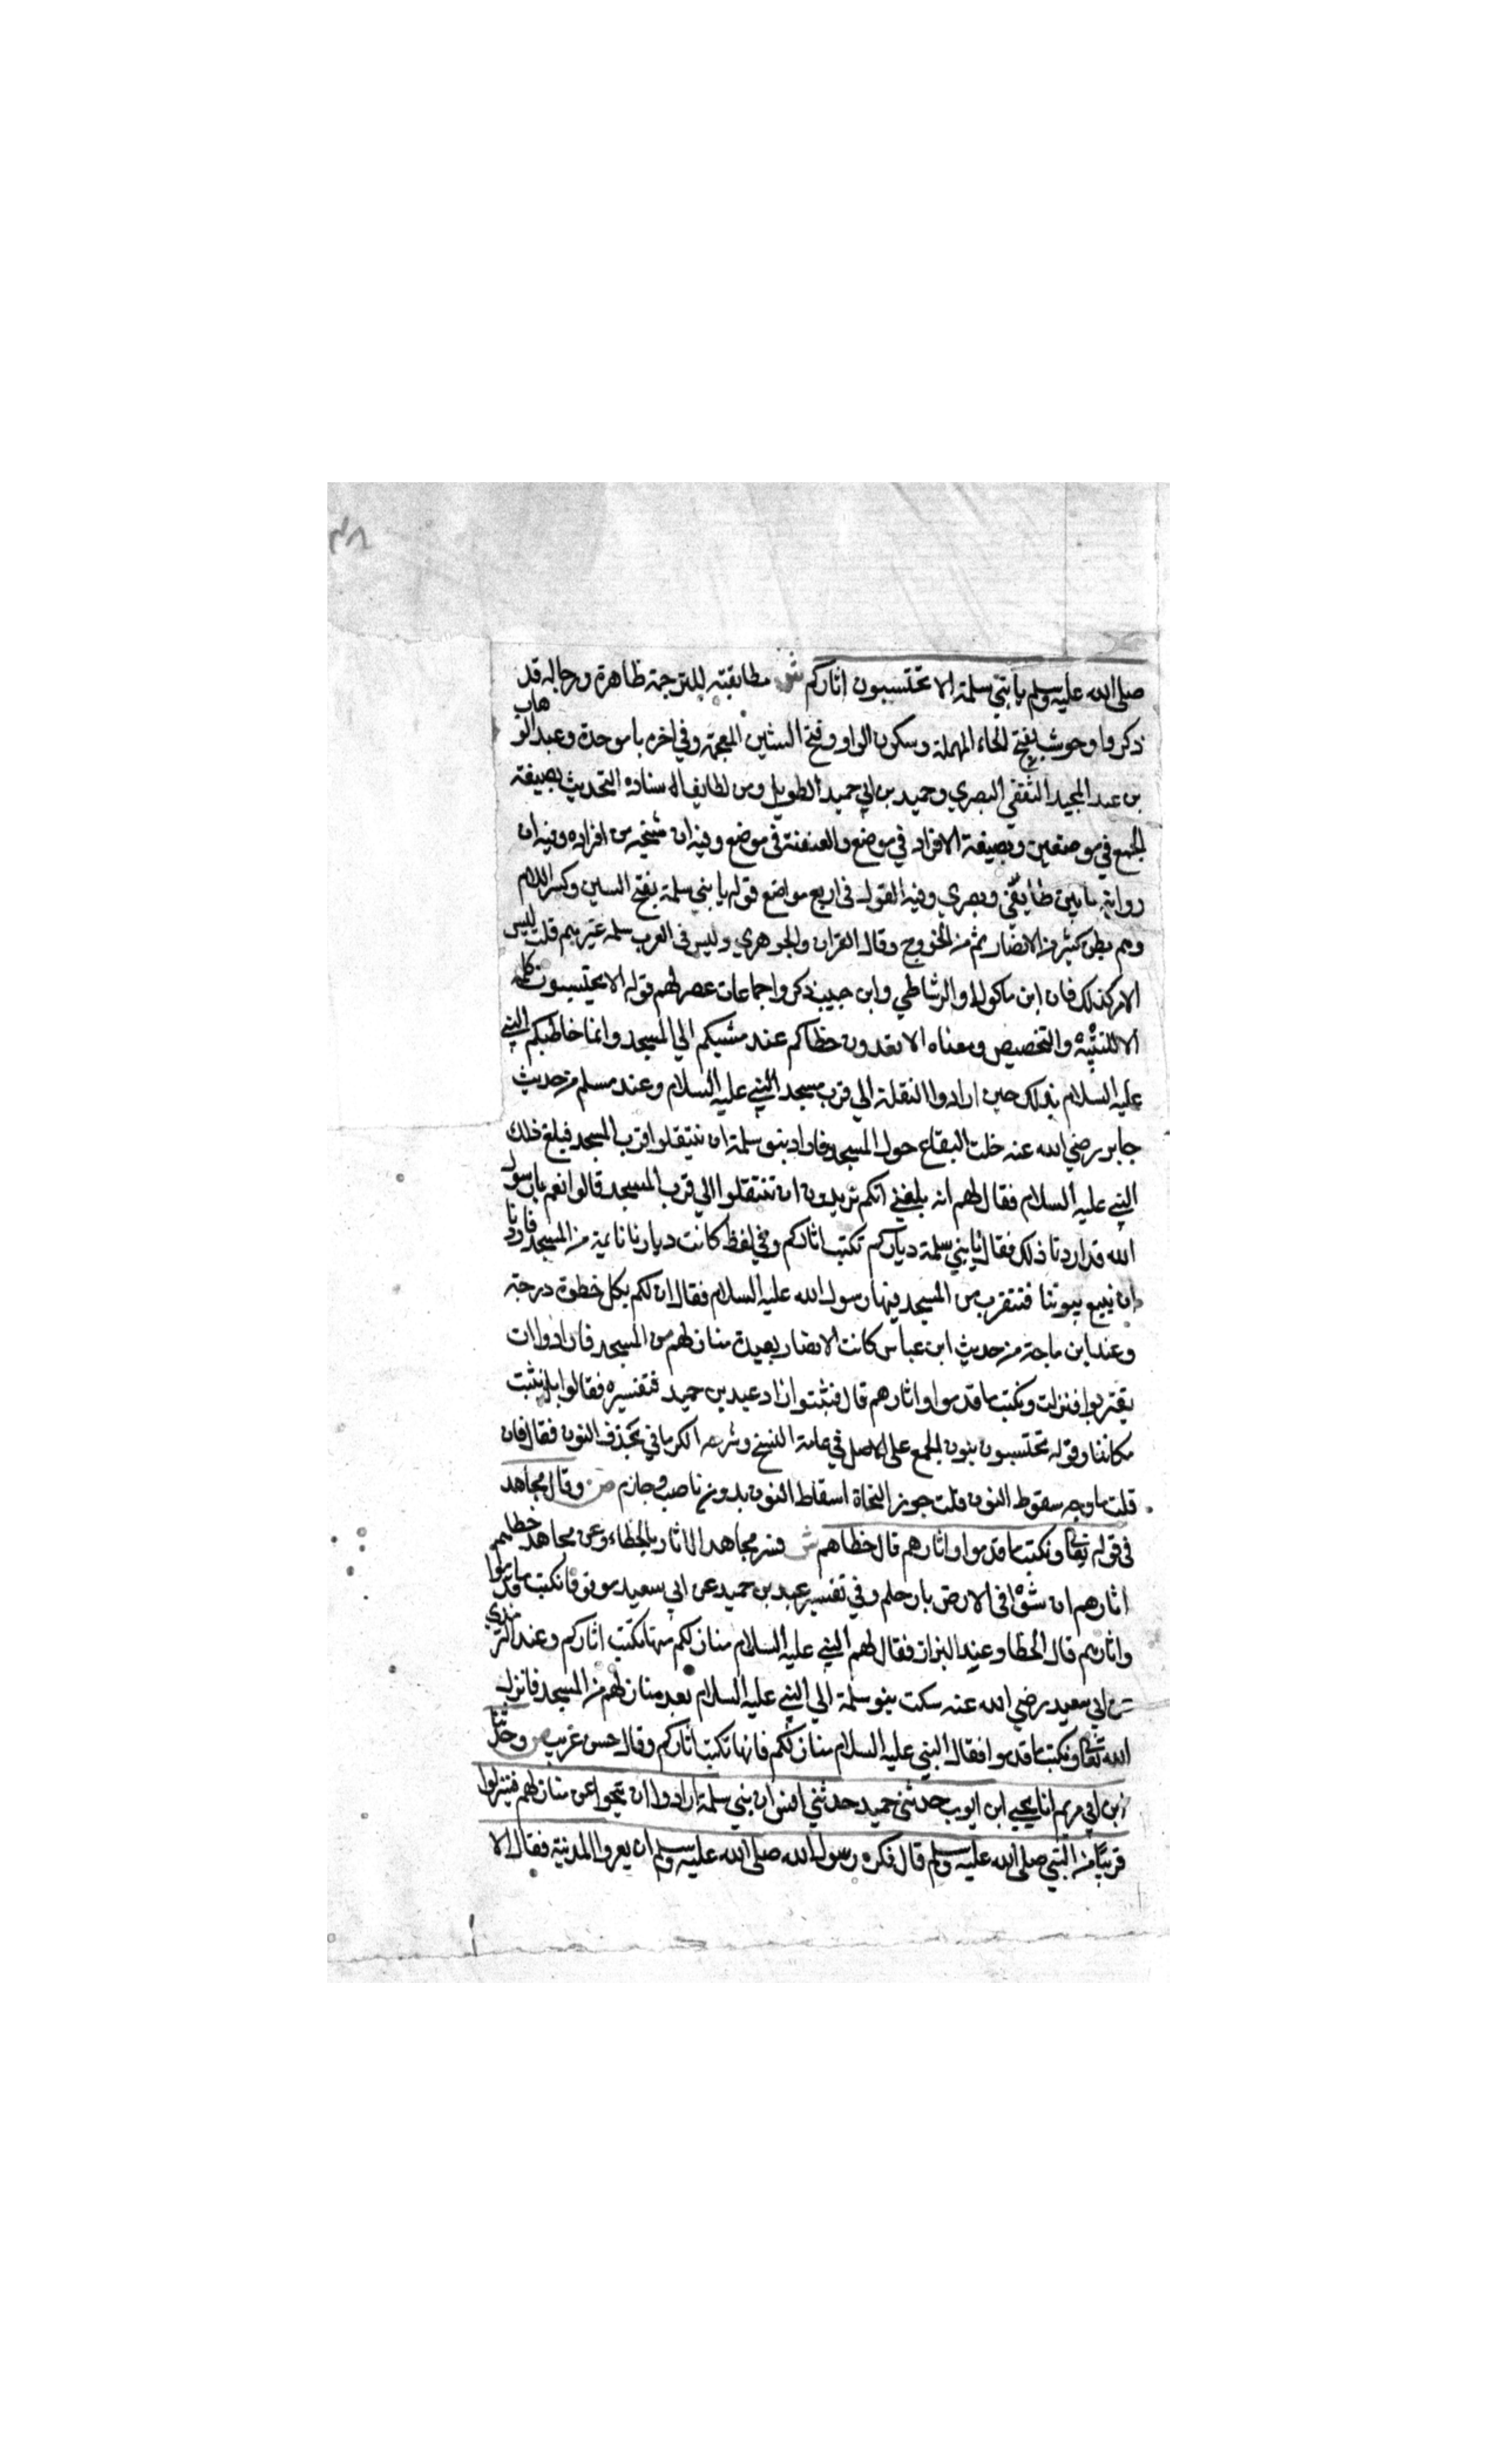 ٣٨
صلى الله عليه وسلم يا بني سلمة الا تحتسبون اثاركم ش مطابقته للترجمة ظاهرة ورجاله قد
ذكروا وحوشب بفتح الحاء المهملة وسكون الواو وفتح الشين المعجمة وفي اخره باموحدة وعبد الوهاب
بن عبد المجيد الثقفي البصري وحميد بن ابي حميد الطويل ومن لطايف الاسناده التحديث بصيغة
الجمع في موضعين وبصيغة الافراد في موضع والعنعنة في موضع وفيه ان شيخه من افراده وفيه ان
رواته مابين طائفي وبصري وفيه القول في اربع مواضع قوله يا بني سلمة بفتح السين وكسر اللام
وهم بطن كثير من الانصار ثم من الخزرج وقال القزاز والجوهري وليس في العرب سلمة غيرهم قلت ليس
الامر كذلك فان ابن ماكولا والرشاطي وابن حبيب ذكروا جماعات عصرلهم قوله الا تحتسبون كلمة
الا للتنبيه والتخصيص ومعناه الا تعدون خطاكم عند مشيكم الي المسجد وانما خاطبكم النبي
عليه السلام بذلك حين ارادوا النقلة الي قرب مسجد النبي عليه السلام وعند مسلم من حديث
جابر رضي الله عنه خلت البقاع حول المسجد فاراد بنو سلمة ان ينتقلوا قرب المسجد فبلغ ذلك
النبي عليه السلام فقال لهم انه بلغني انكم تريدون ان تنتقلوا الي قرب المسجد قالوا نعم يارسول
الله قد اردنا ذلك فقال يا بني سلمة دياركم تكتب اثاركم وفي لفظ كانت ديارنا نائية من المسجد فاردنا
ان نبيع بيوتنا فنتقرب من المسجد فنهارسول الله عليه السلام فقال ان لكم بكل خطوة درجة
وعند ابن ماجة من حديث ابن عباس كانت الانصار بعيدة منازلهم من المسجد فارادوا ان
يقتربوا فنزلت ونكتب ما قدموا واثارهم قال فثبتوا زاد عبد بن حميد فتفسيره فقالوا بل نثبت
مكاننا وقوله تحتسبون بنون الجمع على الاصل في عامة النسخ وشرحه الكرماني بحذف النون فقال فان
قلت ما وجه سقوط النون قلت جوز النحاة اسقاط النون بدون ناصب وجازم ص وقال مجاهد
في قوله تعالى ونكتب ما قدموا واثارهم قال خطاهم ش فسر مجاهد الاثار بالخطاء وعن مجاهد خطاهم
اثارهم ان شوا في الارض بارجلهم وفي تفسير عبد بن حميد عن ابي سعيد ونكتب ما قدموا
واثارهم قال الخطا وعند البزاز فقال لهم النبي عليه السلام منازلكم منها تكتب اثاركم وعند الترمذي
عن ابي سعيد رضي الله عنه سكت بنو سلمة الي النبي عليه السلام بعد منازلهم من المسجد فانزل
الله تعالى ونكتب ما قدموا فقال النبي عليه السلام منازلكم فانها تكتب اثاركم وقال حسن غريب ص وحدثنا
ابن ابي مريم انا يحيي ابن ايوب حدثني حميد حدثني انس ان بني سلمة ارادوا ان يتحولوا عن منازلهم فينزلوا
قريبا من النبي صلى الله عليه وسلم قال فكره رسول الله صلى الله عليه وسلم ان يعروا المدينة فقال الا